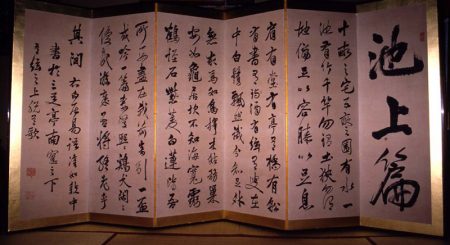 池上篇
十畝之宅五畝之園有水一
池有竹千竿勿謂土狹勿謂
地偏足以容膝足以息
肩有堂有亭有橋有船
有書有酒有歌有弦有叟在
中白鬚飄然識分知足外
無求焉如鳥擇木姑務巢
安如龜居坎不知海寬靈
鶴怪石紫菱白蓮皆吾
所好盡在我前時引一盃
或吟一篇妻孥熙熙鷄犬閑閑
優哉游哉吾將終老乎
其間 右白居易
書於三 亭南窗之下